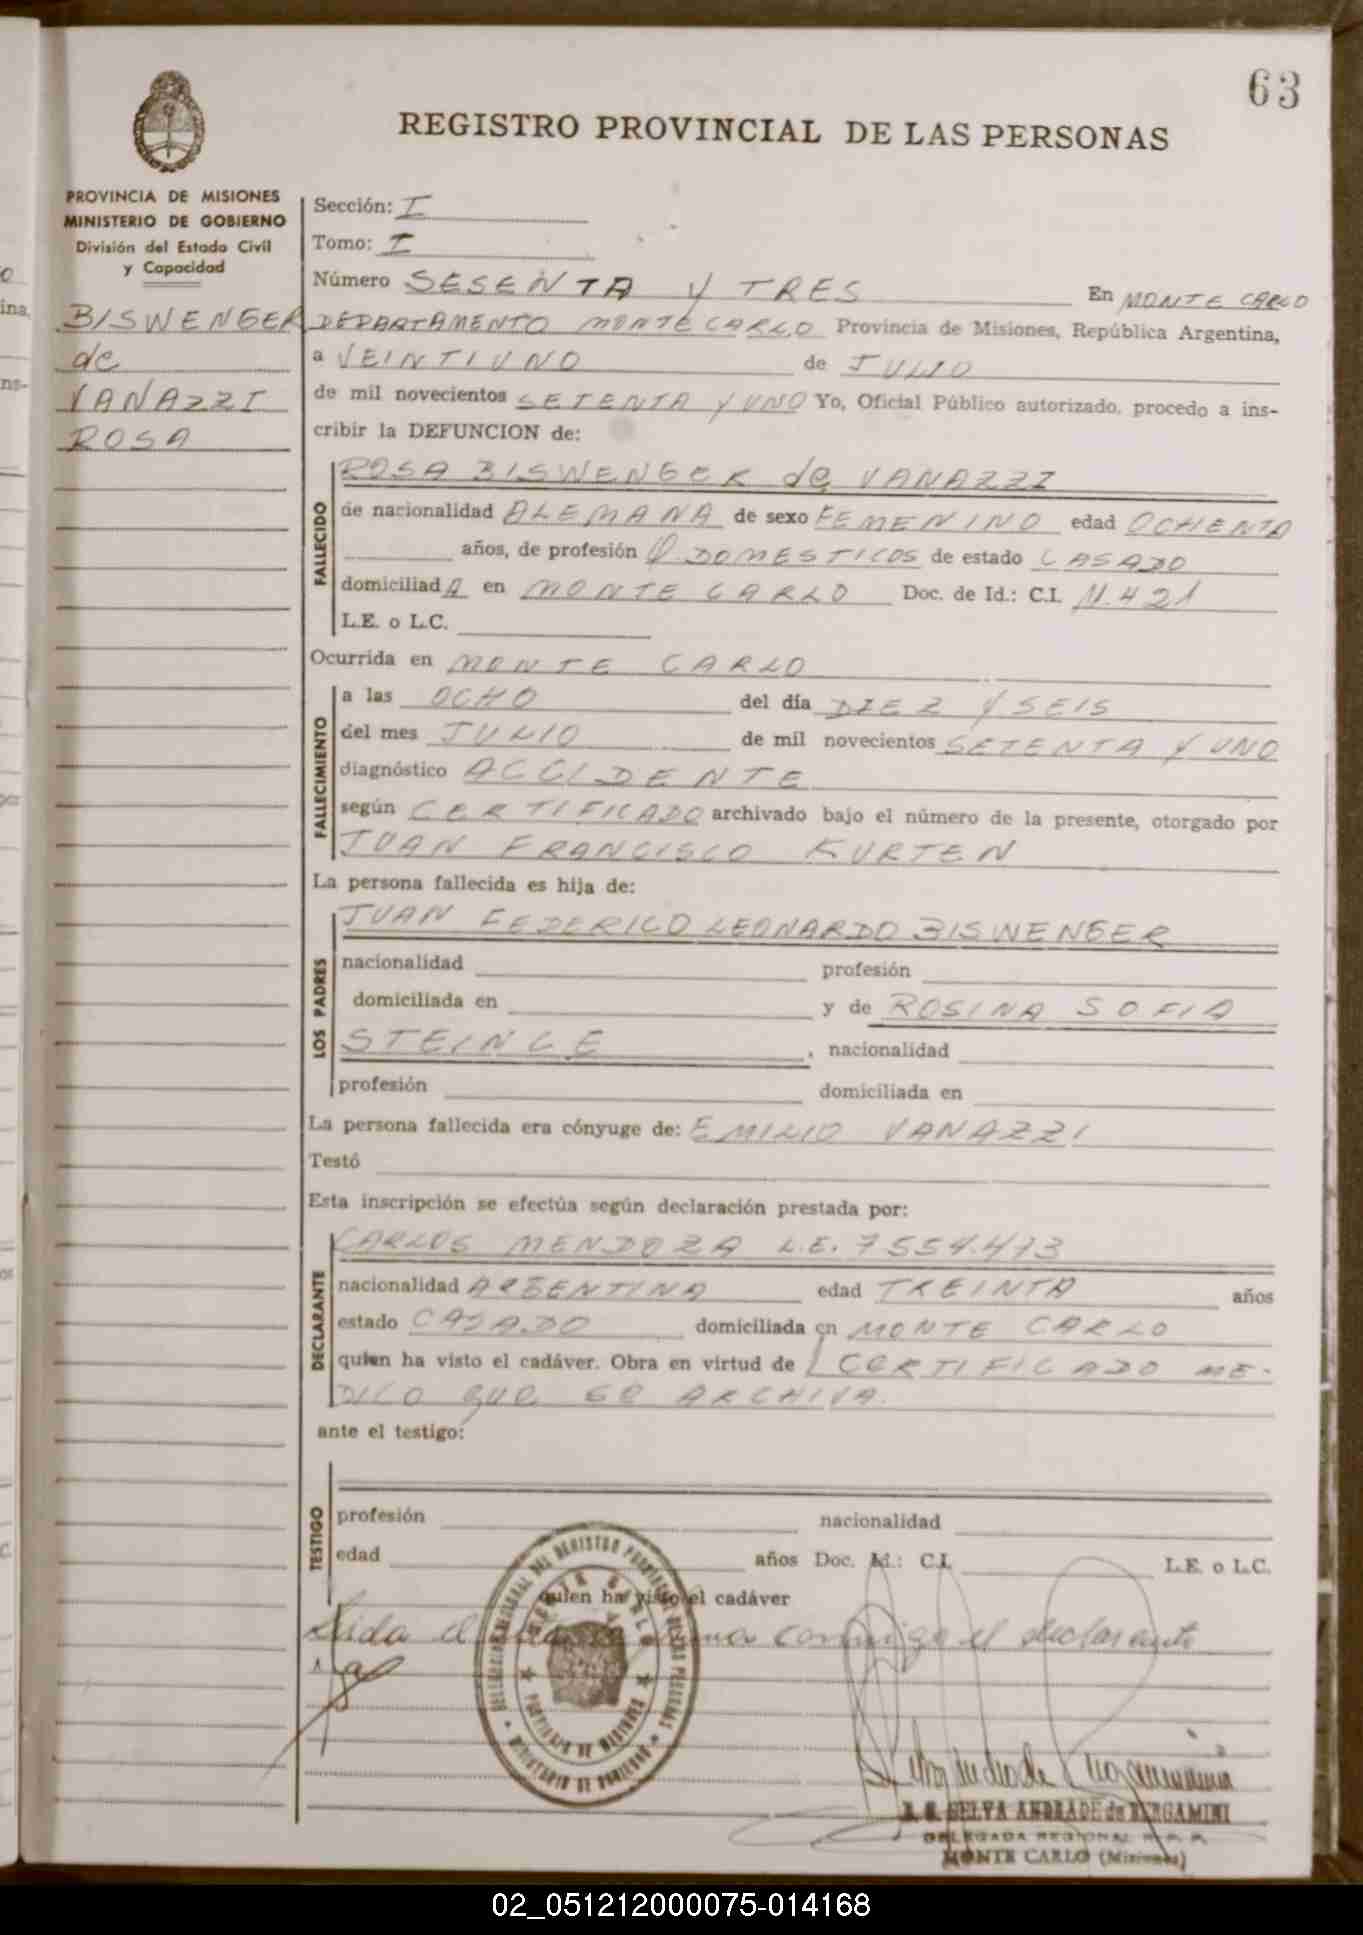 63
REGISTRO PROVINCIAL DE LAS PERSONAS
PROVINCIA DE MISIONES
MINISTERIO DE GOBIERNO
División del Estado Civil
y Capacidad
BISWENGER
de
VANAZZI
ROSA
Sección: I
Tomo: I
Número SESENTA Y TRES En MONTE CARLO
DEPARTAMENTO MONTE CARLO Provincia de Misiones, República Argentina,
a VEINTIUNO de JULIO
de mil novecientos SETENTA Y UNO Yo, Oficial Público autorizado, procedo a ins-
cribir la DEFUNCION de:
FALLECIDO
ROSA BISWENGER de VANAZZI
de nacionalidad ALEMANA de sexo FEMENINO edad OCHENTA
años, de profesión Q. DOMESTICOS de estado CASADO
domiciliadA en MONTE CARLO Doc. de Id.: C.I. 11.421
L.E. o L.C.
Ocurrida en MONTE CARLO
FALLECIMIENTO
a las OCHO del día DIEZ Y SEIS
del mes JULIO de mil novecientos SETENTA Y UNO
diagnóstico ACCIDENTE
según CERTIFICADO archivado bajo el número de la presente, otorgado por
JUAN FRANCISCO KURTEN
La persona fallecida es hija de:
LOS PADRES
JUAN FEDERICO LEONARDO BISWENGER
nacionalidad profesión
domiciliada en y de ROSINA SOFIA
STEINLE , nacionalidad
profesión domiciliada en
La persona fallecida era cónyuge de: EMILIO VANAZZI
Testó
Esta inscripción se efectúa según declaración prestada por:
DECLARANTE
CARLOS MENDOZA L.E. 7554.473
nacionalidad ARGENTINA edad TREINTA años
estado CASADO domiciliada en MONTE CARLO
quien ha visto el cadáver. Obra en virtud de CERTIFICADO ME-
DICO que se ARCHIVA.
ante el testigo:
TESTIGO
profesión nacionalidad
edad años Doc. Id.: C.I. L.E. o L.C.
quien ha visto el cadáver
Leida el conmigo el declarante
DELEGACION REGIONAL DEL REGISTRO PROVINCIAL DE LAS PERSONAS
MINISTERIO DE GOBIERNO
MONTE CARLO
PROVINCIA DE MISIONES
SELVA ANDRADE de BERGAMINI
DELEGADA REGIONAL R. P. P.
MONTE CARLO (Misiones)
02_051212000075-014168